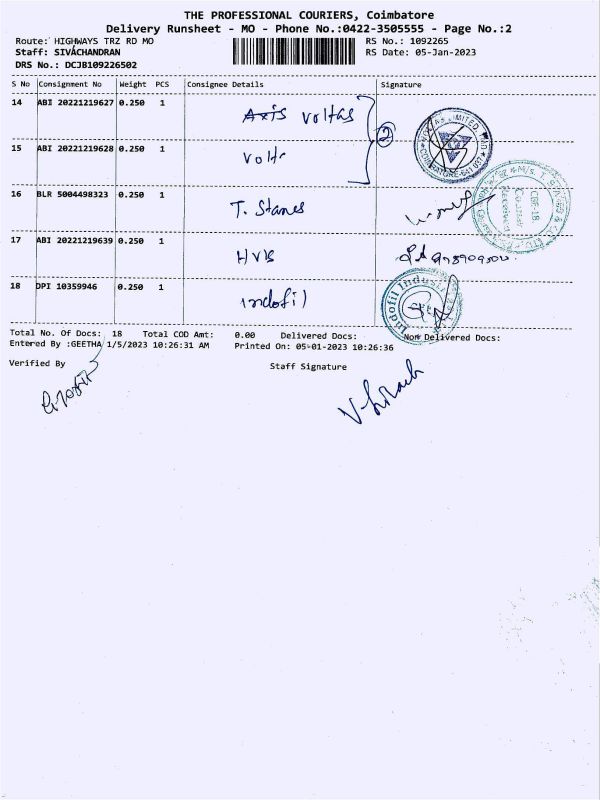 THE PROFESSIONAL COURIERS, Coimbatore
Delivery Runsheet - MO - Phone No.:0422-3505555 - Page No.:2
Route: HIGHWAYS TRZ RD MO RS No.: 1092265
Staff: SIVACHANDRAN RS Date: 05-Jan-2023
DRS No.: DCJB109226502
S No Consignment No Weight PCS Consignee Details Signature
14 ABI 20221219627 0.250 1 Axis Voltas
2
VOLTAS LIMITED
COIMBATORE-641
15 ABI 20221219628 0.250 1 Volt
16 BLR 5004498323 0.250 1 T. Stanes
CBF-18
Courier
17 ABI 20221219639 0.250 1 HVB
18 DPI 10359946 0.250 1 indofil
Indofil Industr
Total No. Of Docs: 18 Total COD Amt: 0.00 Delivered Docs: Non Delivered Docs:
Entered By :GEETHA 1/5/2023 10:26:31 AM Printed On: 05-01-2023 10:26:36
Verified By Staff Signature